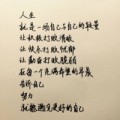 人生
就是一场自己与自己的较量
让积极打败消极
让快乐打败忧郁
让勤奋打败脆弱
在每一个充满希望的早晨
告诉自己
努力
就能遇见更好的自己